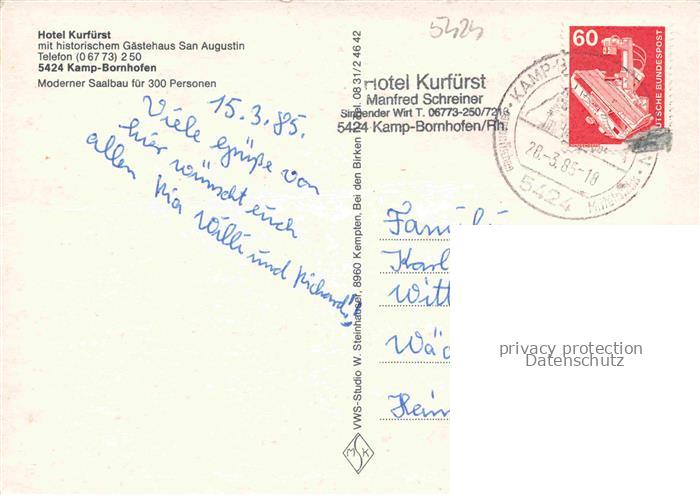 Hotel Kurfürst
mit historischem Gästehaus San Augustin
Telefon (0 67 73) 2 50
5424 Kamp-Bornhofen
Moderner Saalbau für 300 Personen
15.3.85.
Viele Grüße von
hier wünscht euch
allen Pia Willi und Richard
VWS-Studio W. Steinhauser, 8960 Kempten, Bei den Birken Tel. 08 31/2 46 42
MSK
5424
Hotel Kurfürst
Manfred Schreiner
Singender Wirt T. 06773-250/7216
5424 Kamp-Bornhofen/Rh.
60
DEUTSCHE BUNDESPOST
KAMP-
28.-3.85-18
5424
Famili
Karl
Witt
Wä
Hein
privacy protection
Datenschutz